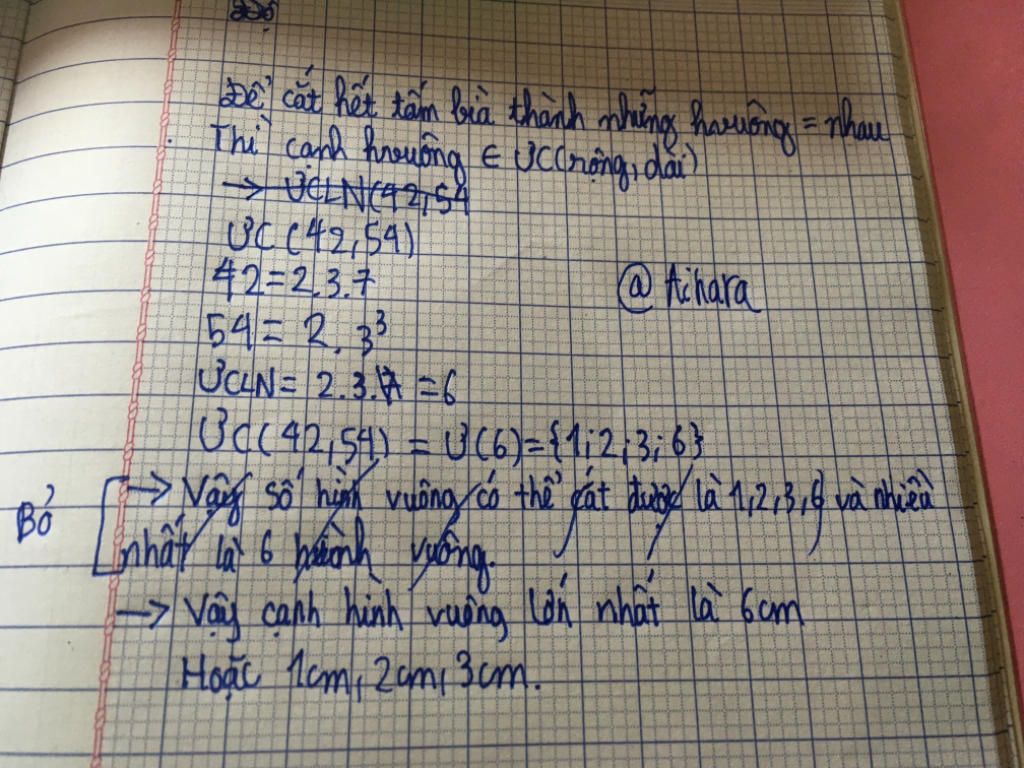 Để cắt hết tấm bìa thành những hvuông = nhau
Thì cạnh hvuông ∈ ƯC(rộng, dài)
→ ƯCLN(42,54
ƯC(42,54)
42=2.3.7
@ Aihara
54= 2. 3³
ƯCLN= 2.3. =6
ƯC(42,54) = Ư(6)={1;2;3;6}
→ Vậy số hình vuông có thể cắt được là 1,2,3,6 và nhiều
Bỏ
nhất là 6 hình vuông.
→ Vậy cạnh hình vuông lớn nhất là 6cm
Hoặc 1cm, 2cm, 3cm.